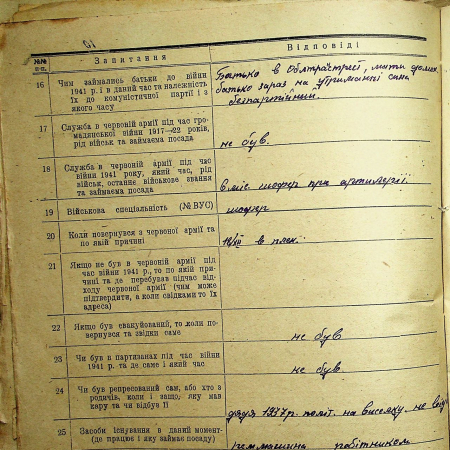 №№ п-п.
Запитання
Відповіді
16
Чим займались батьки до війни
1941 р. і в даний час та належність
їх до комуністичної партії і з
якого часу
Батько в Облтрансстрої, мати домох.
батько зараз на утриманні сина
безпартійний.
17
Служба в червоній армії під час гро-
мадянської війни 1917—22 років,
рід військ та займаєма посада
не був.
18
Служба в червоній армії під час
війни 1941 року, який час, рід
військ, останнє військове звання
та займаєма посада
шофер при артилерії.
19
Військова спеціальність (№ ВУС)
шофер
20
Коли повернувся з червоної армії та
по якій причині
в плен.
21
Якщо не був в червоній армії під
час війни 1941 р., то по якій при-
чині та де перебував підчас від-
ходу червоної армії (чим може
підтвердити, а коли свідками то їх
адреса)
22
Якщо був евакуйований, то коли по-
вернувся та звідки саме
не був
23
Чи був в партизанах під час війни
1941 р. та де саме і який час
не був
24
Чи був репресований сам, або хто з
родичів, коли і защо, яку мав
кару та чи відбув її
дядя 1937р. політ. на висилку. не
25
Засоби існування в даний момент-
(де працює і яку займає посаду)
робітником